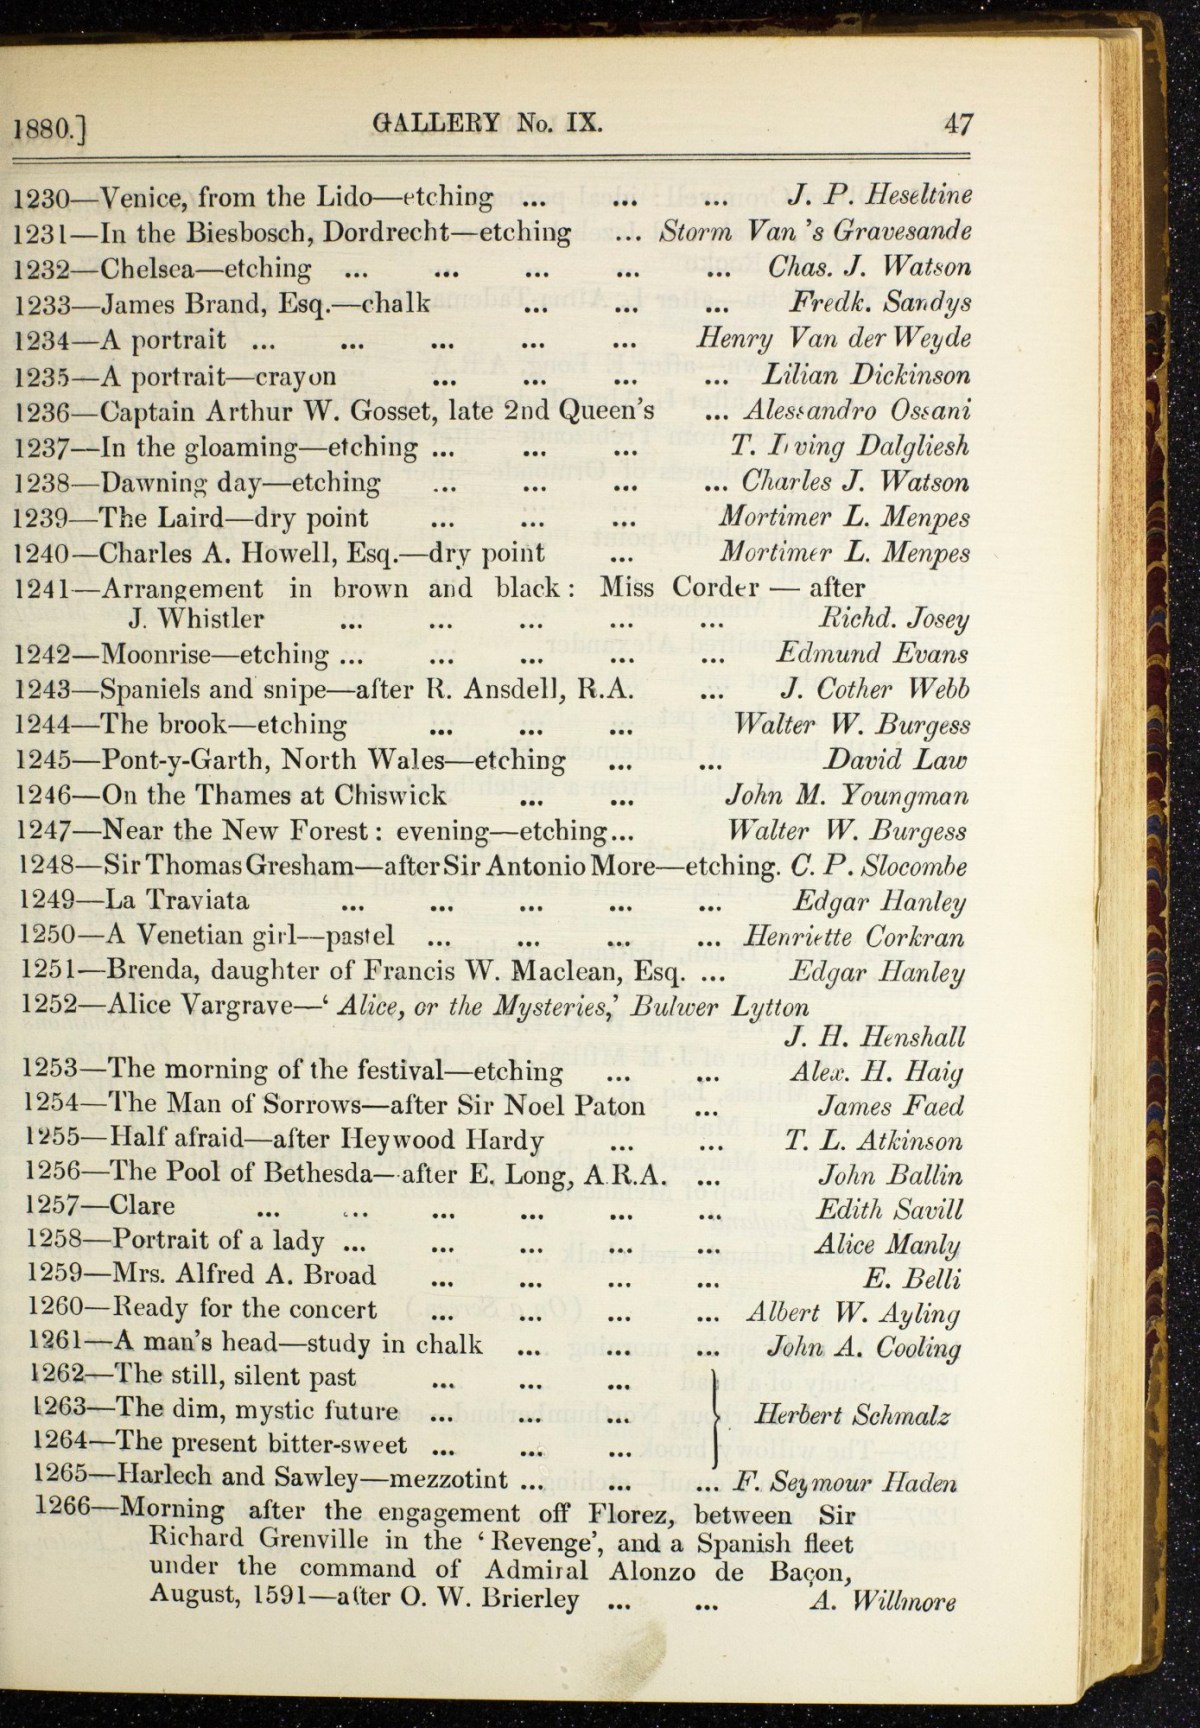 1880.] GALLERY No. IX. 47
1230—Venice, from the Lido—etching ... ... ... J. P. Heseltine
1231—In the Biesbosch, Dordrecht—etching ... Storm Van 's Gravesande
1232—Chelsea—etching ... ... ... ... ... Chas. J. Watson
1233—James Brand, Esq.—chalk ... ... ... Fredk. Sandys
1234—A portrait ... ... ... ... ... Henry Van der Weyde
1235—A portrait—crayon ... ... ... ... Lilian Dickinson
1236—Captain Arthur W. Gosset, late 2nd Queen's ... Alessandro Ossani
1237—In the gloaming—etching ... ... ... T. Irving Dalgliesh
1238—Dawning day—etching ... ... ... ... Charles J. Watson
1239—The Laird—dry point ... ... ... Mortimer L. Menpes
1240—Charles A. Howell, Esq.—dry point ... Mortimer L. Menpes
1241—Arrangement in brown and black: Miss Corder — after
J. Whistler ... ... ... ... ... Richd. Josey
1242—Moonrise—etching ... ... ... ... ... Edmund Evans
1243—Spaniels and snipe—after R. Ansdell, R.A. ... J. Cother Webb
1244—The brook—etching ... ... ... Walter W. Burgess
1245—Pont-y-Garth, North Wales—etching ... ... David Law
1246—On the Thames at Chiswick ... ... John M. Youngman
1247—Near the New Forest: evening—etching... Walter W. Burgess
1248—Sir Thomas Gresham—after Sir Antonio More—etching. C. P. Slocombe
1249—La Traviata ... ... ... ... ... Edgar Hanley
1250—A Venetian girl—pastel ... ... ... ... Henriette Corkran
1251—Brenda, daughter of Francis W. Maclean, Esq. ... Edgar Hanley
1252—Alice Vargrave—' Alice, or the Mysteries,' Bulwer Lytton
J. H. Henshall
1253—The morning of the festival—etching ... ... Alex. H. Haig
1254—The Man of Sorrows—after Sir Noel Paton ... James Faed
1255—Half afraid—after Heywood Hardy ... ... T. L. Atkinson
1256—The Pool of Bethesda—after E. Long, A.R.A. ... John Ballin
1257—Clare ... ... ... ... ... ... Edith Savill
1258—Portrait of a lady ... ... ... ... ... Alice Manly
1259—Mrs. Alfred A. Broad ... ... ... ... E. Belli
1260—Ready for the concert ... ... ... ... Albert W. Ayling
1261—A man's head—study in chalk ... ... ... John A. Cooling
1262—The still, silent past ... ... ...
1263—The dim, mystic future ... ... ... } Herbert Schmalz
1264—The present bitter-sweet ... ... ...
1265—Harlech and Sawley—mezzotint ... ... ... F. Seymour Haden
1266—Morning after the engagement off Florez, between Sir
Richard Grenville in the 'Revenge', and a Spanish fleet
under the command of Admiral Alonzo de Baçon,
August, 1591—after O. W. Brierley ... ... A. Willmore